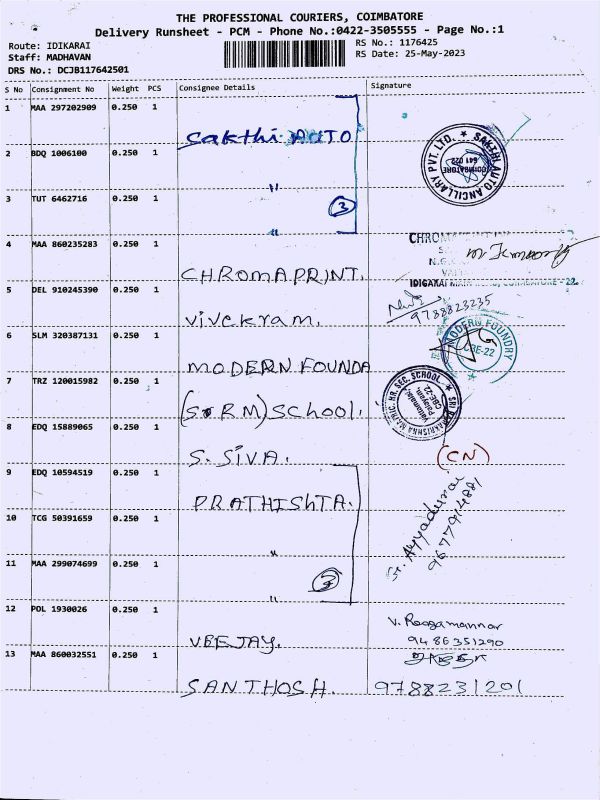 THE PROFESSIONAL COURIERS, COIMBATORE
Delivery Runsheet - PCM - Phone No.:0422-3505555 - Page No.:1
Route: IDIKARAI
Staff: MADHAVAN
DRS No.: DCJB117642501
RS No.: 1176425
RS Date: 25-May-2023
S No Consignment No Weight PCS Consignee Details Signature
1 MAA 297202909 0.250 1
Sakthi AUTO
2 BDQ 1006100 0.250 1
"
SAKTHI AUTO ANCILLARY PVT. LTD. ★
COIMBATORE
641 022
3 TUT 6462716 0.250 1
3
"
4 MAA 860235283 0.250 1
CHROMAPRINT.
IDIGARAI MAIN ROAD, COIMBATORE - 22.
5 DEL 910245390 0.250 1
Vivekram.
9788823235
6 SLM 320387131 0.250 1
MODERN FOUNDA
MODERN FOUNDRY
CBE-22
7 TRZ 120015982 0.250 1
(SRRM) SCHOOL.
SRI RAMAKRISHNA MATRIC. HR. SEC. SCHOOL.
CBE-22
8 EDQ 15889065 0.250 1
S. SIVA.
(CN)
9 EDQ 10594519 0.250 1
PRATHISHTA.
10 TCG 50391659 0.250 1
"
Ayyadurai
9677914881
11 MAA 299074699 0.250 1
3
"
12 POL 1930026 0.250 1
VEEJAY.
V. Rengamannar
9486351290
13 MAA 860032551 0.250 1
SANTHOSH.
9788231201